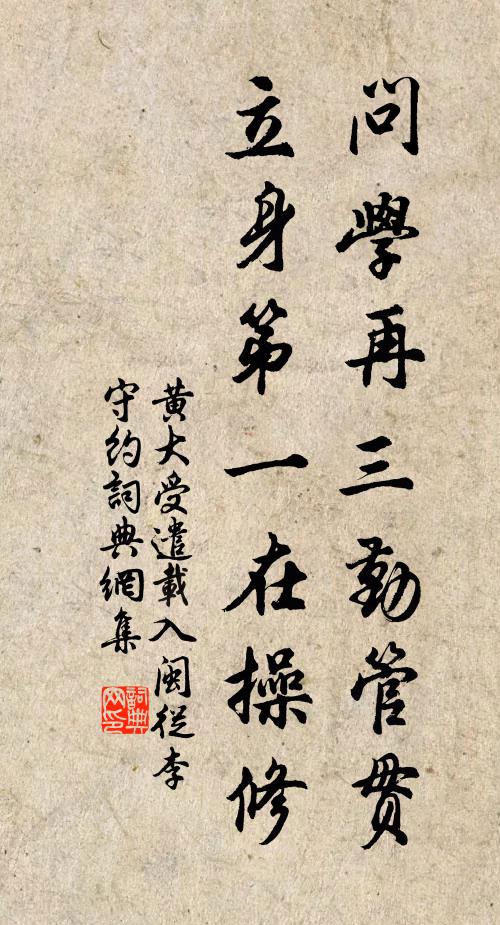 問學再三勤管貫
立身第一在操修
黃大受遣載入閩從李
守約詞典網集
詞典网印